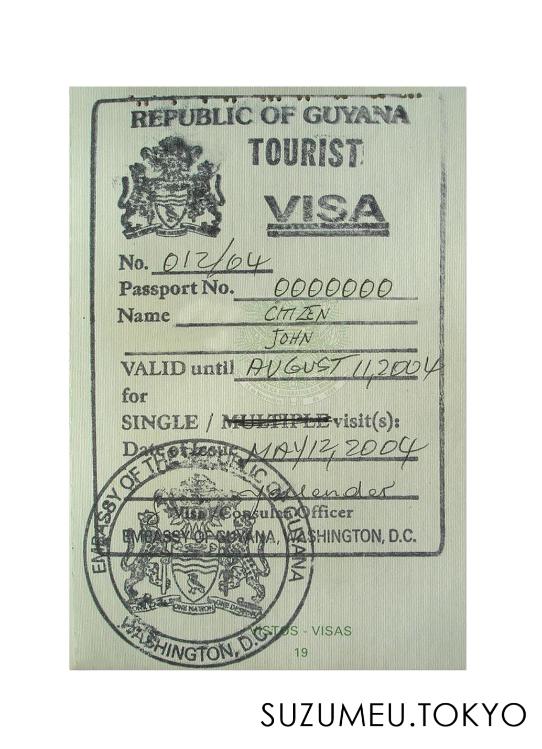 REPUBLIC OF GUYANA
TOURIST
VISA
No. 012/04
Passport No. 0000000
Name CITIZEN
JOHN
VALID until AUGUST 11,2004
for
SINGLE / MULTIPLE visit(s):
Date of Issue MAY/12,2004
Visa/Consular Officer
EMBASSY OF GUYANA, WASHINGTON, D.C.
EMBASSY OF THE REPUBLIC OF GUYANA
WASHINGTON, D.C.
ONE NATION
VISTOS - VISAS
19
SUZUMEU.TOKYO